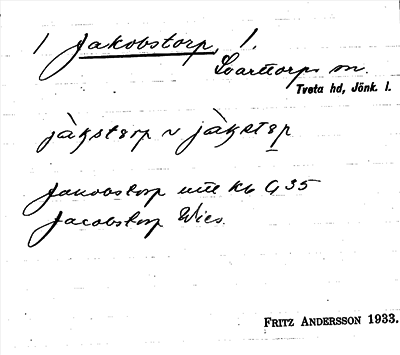 1 Jakobstorp, 1.
Svarttorps sn.
Tveta hd, Jönk. l.
jàkstərp ~ jàkstəp
Jakobstorp utt kb G 35
Jacobstorp Wies.
FRITZ ANDERSSON 1933.